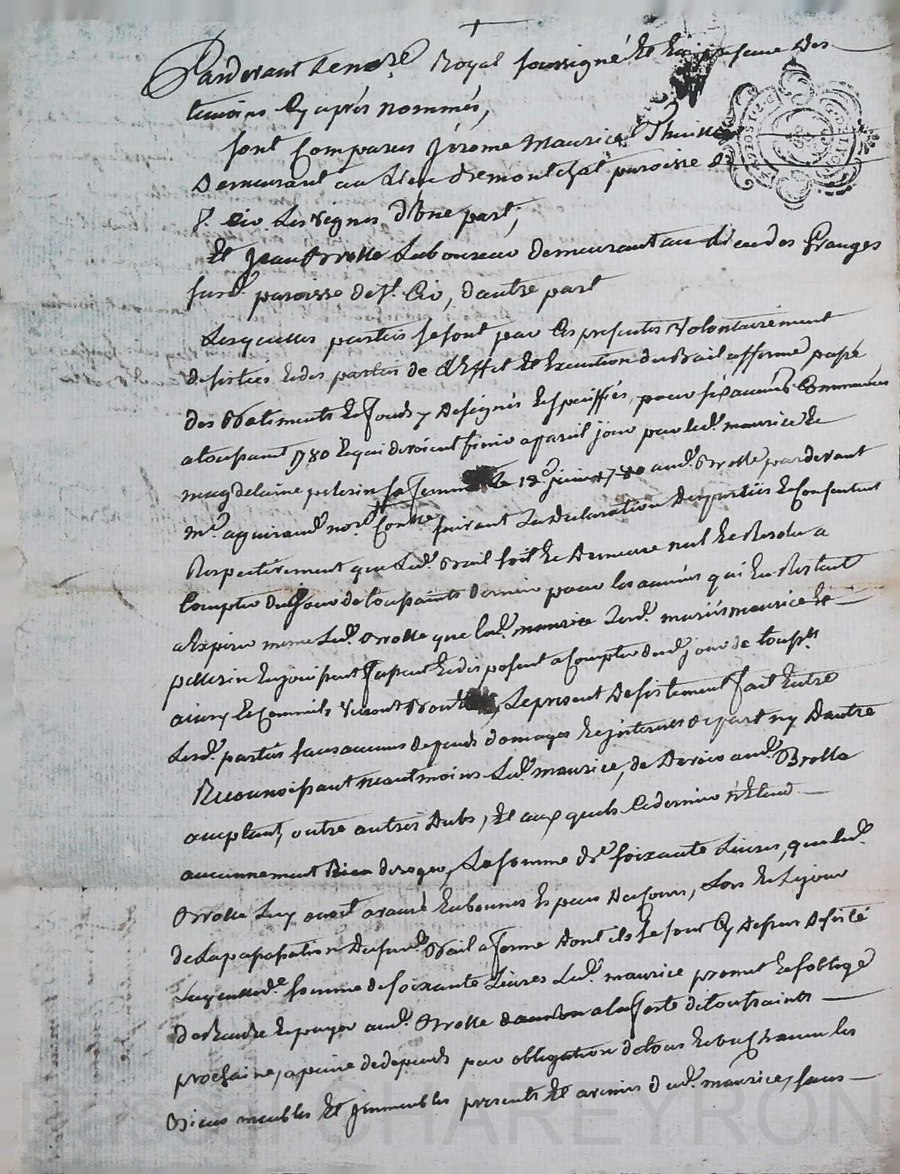 Pardevant le no.re Royal soussigné et en presence des
temoins cy après nommés,
sont comparus Jérome Maurice
Demeurant au Lieu de montchal paroisse de
les vignes d'une part,
Et Jean Brolle Laboureur demeurant au Lieu des Granges
susd. paroisse de St. Cir, d'autre part
Lesquelles parties se sont par ces presentes volontairement
desisties et departies de l'Effet et Execution du Bail afferme passé
des Batiments et fonds y designés et speciffiés, pour six années Commencées
a toussaint 1780 et qui devoient finir a pareil jour par led. maurice et
magdelaine pelerin sa femme le 18e juin 1780 aud. Brolle pardevant
me. aguiraud no.re suivant la declaration des parties et Consentent
Respectivement que led. Bail soit et Demeure nul et Resolu a
Compter du jour de toussaints dernier pour les années qui En Restent
a Expirer meme led. Brolle que lesd. maurice et
pellerin En jouissent fassent et disposent a Compter dud. jour de toussts
ainsy et comme ils verront Bon, le present desistement fait Entre
Lesd. parties sans aucuns depends domages et interests de part ny Dautre
Reconnoissant neantmoins led. maurice, de devoir aud. Brolle
amplant, outre autres dubs, et auxquels ce dernier n'Entend
aucunnement Rien deroger, la somme de soixante Livres, que led.
Brolle Luy avoit avancé En bonnes Especes du Cours, lors et le jour
de la passassation du susd. Bail a ferme dont ils se sont Cy dessus desisté
Laquelle de. somme de soixante Livres led. maurice promet et s'oblige
de Rendre et payer aud. Brolle a la feste de toutsaints
prochaine, a peine de depends par obligation de tous et
Biens meubles et immeubles presents et avenir dud. maurice, sous
CHAREYRON